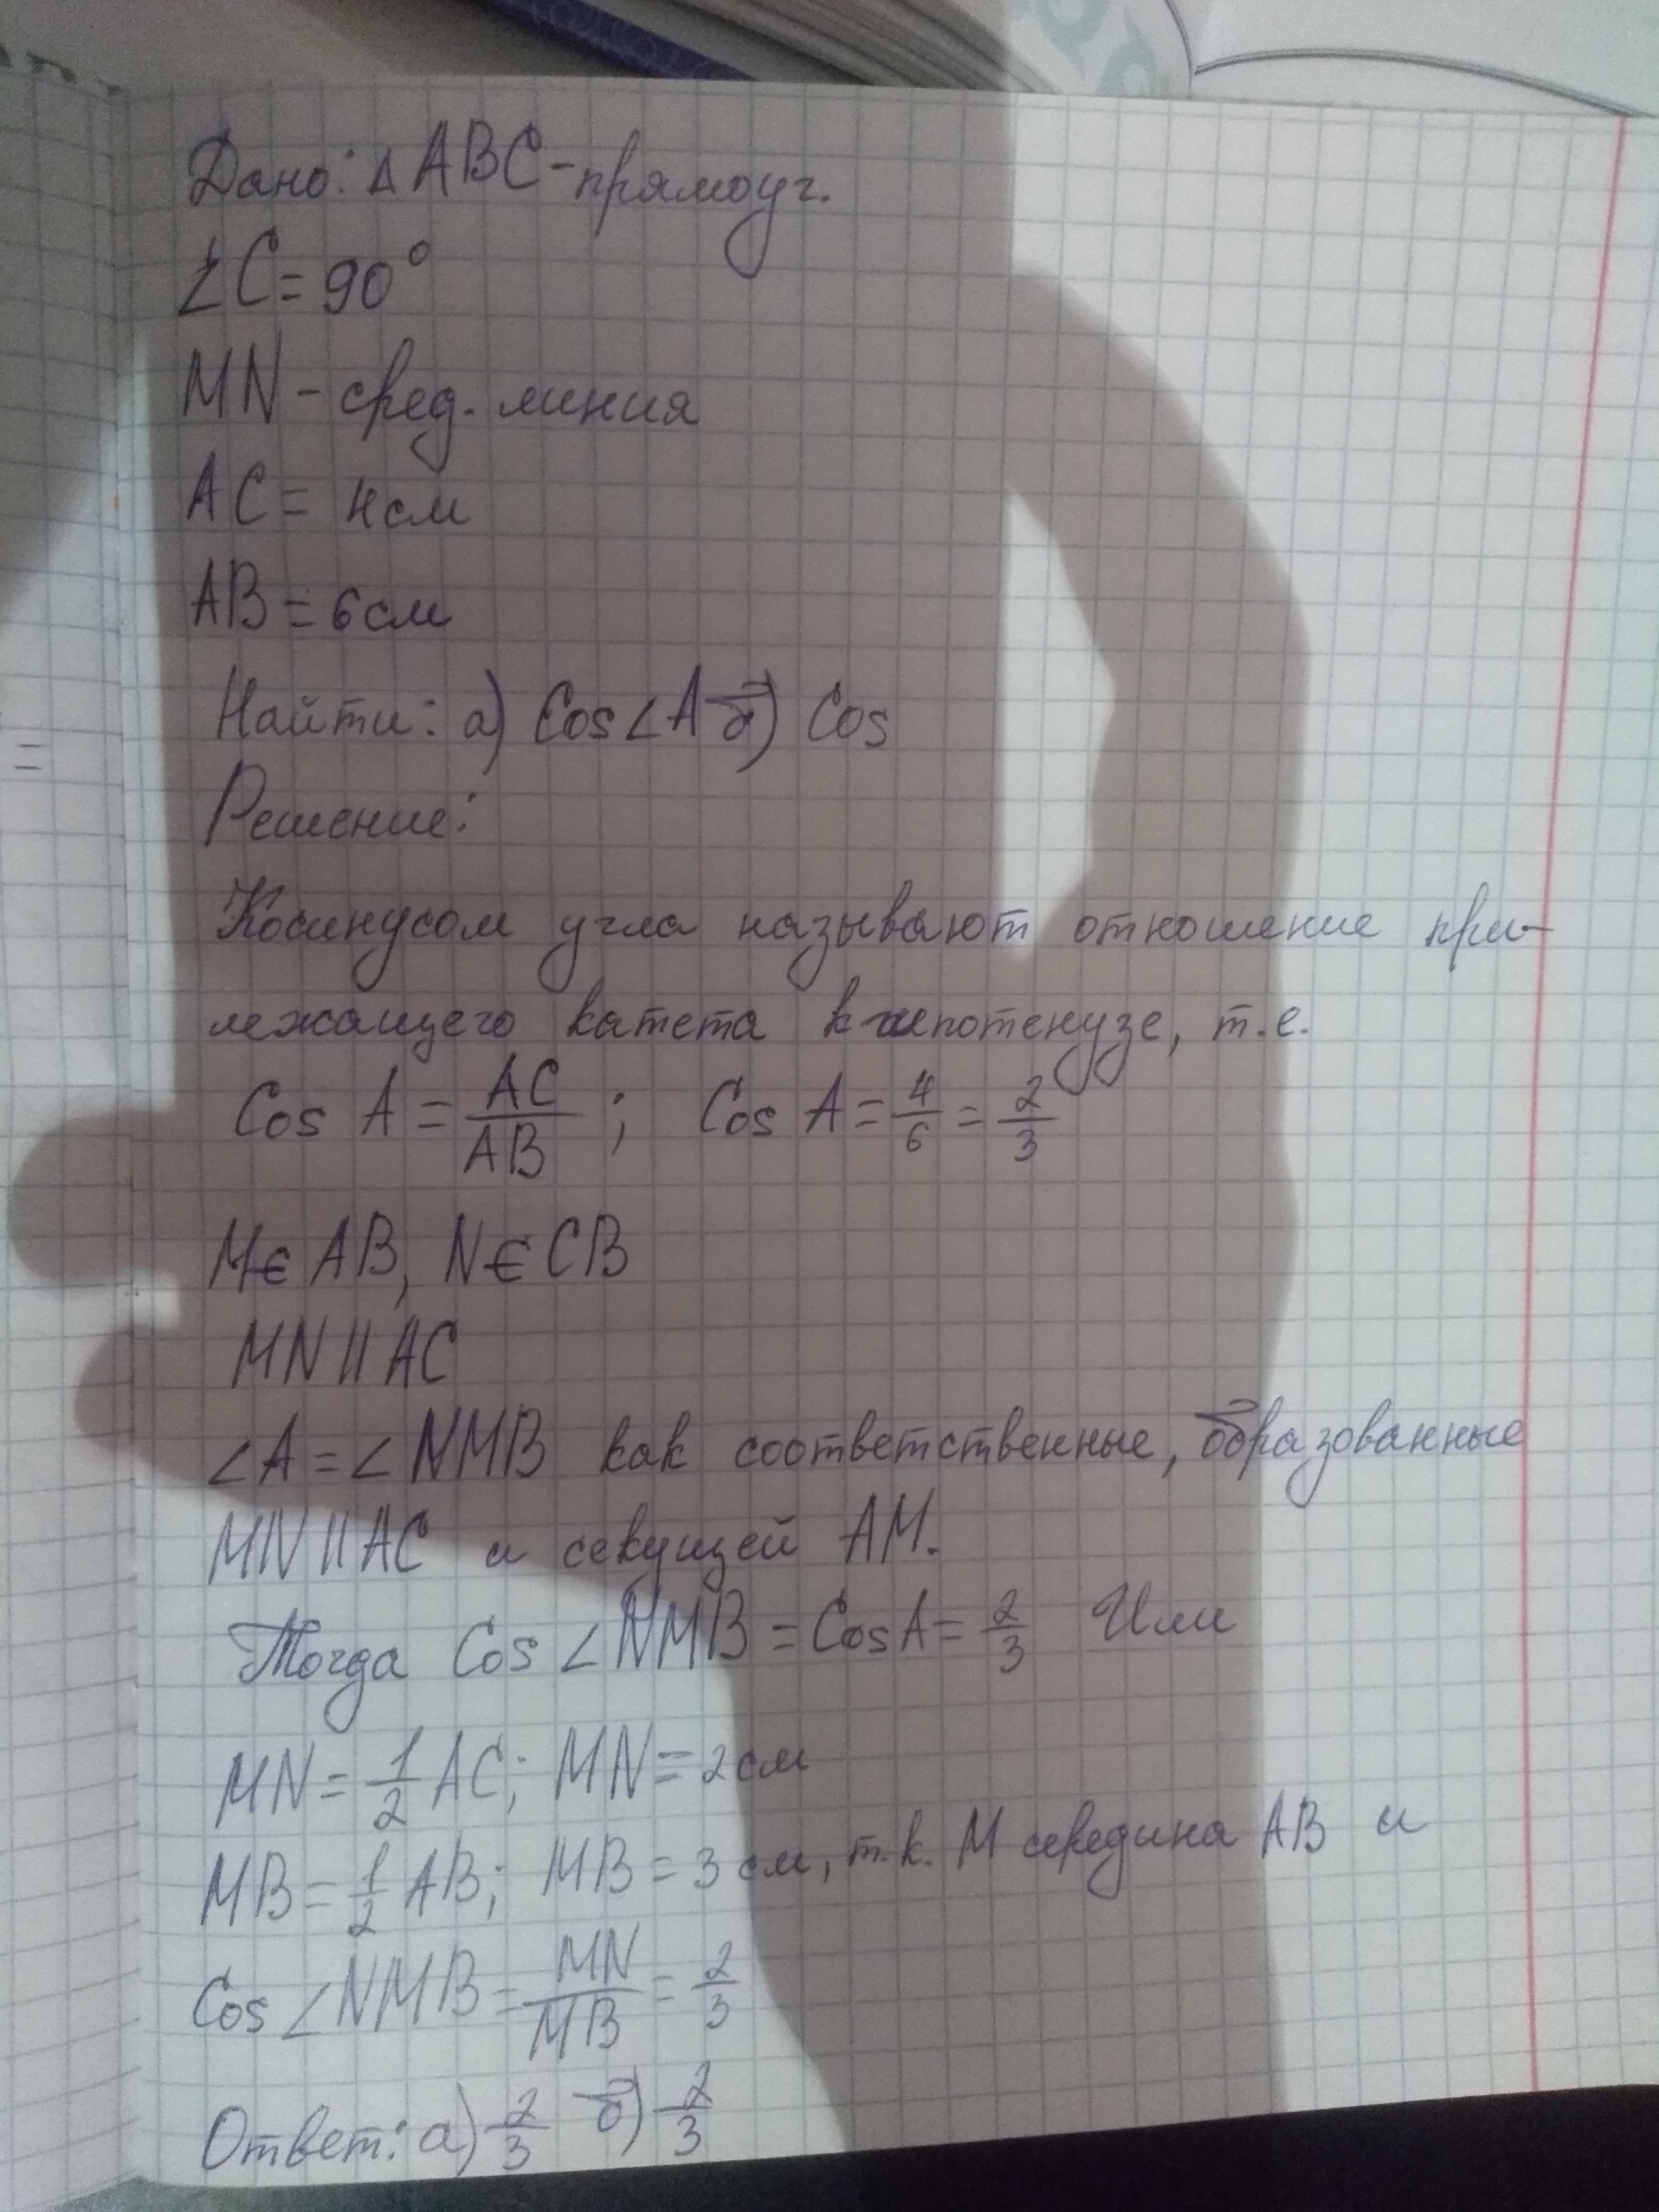 Дано: △ABC - прямоуг.
∠C = 90°
MN - сред. линия
AC = 4 см
AB = 6 см
Найти: а) Cos∠A б) Cos
Решение:
Косинусом угла называют отношение при-
лежащего катета к гипотенузе, т.е.
Cos A = AC/AB ; Cos A = 4/6 = 2/3
M∈AB, N∈CB
MN ∥ AC
∠A = ∠NMB как соответственные, образованные
MN ∥ AC и секущей AM.
Тогда Cos∠NMB = Cos A = 2/3 Или
MN = 1/2 AC; MN = 2 см
MB = 1/2 AB; MB = 3 см, т.к. M середина AB и
Cos∠NMB = MN/MB = 2/3
Ответ: а) 2/3 б) 2/3